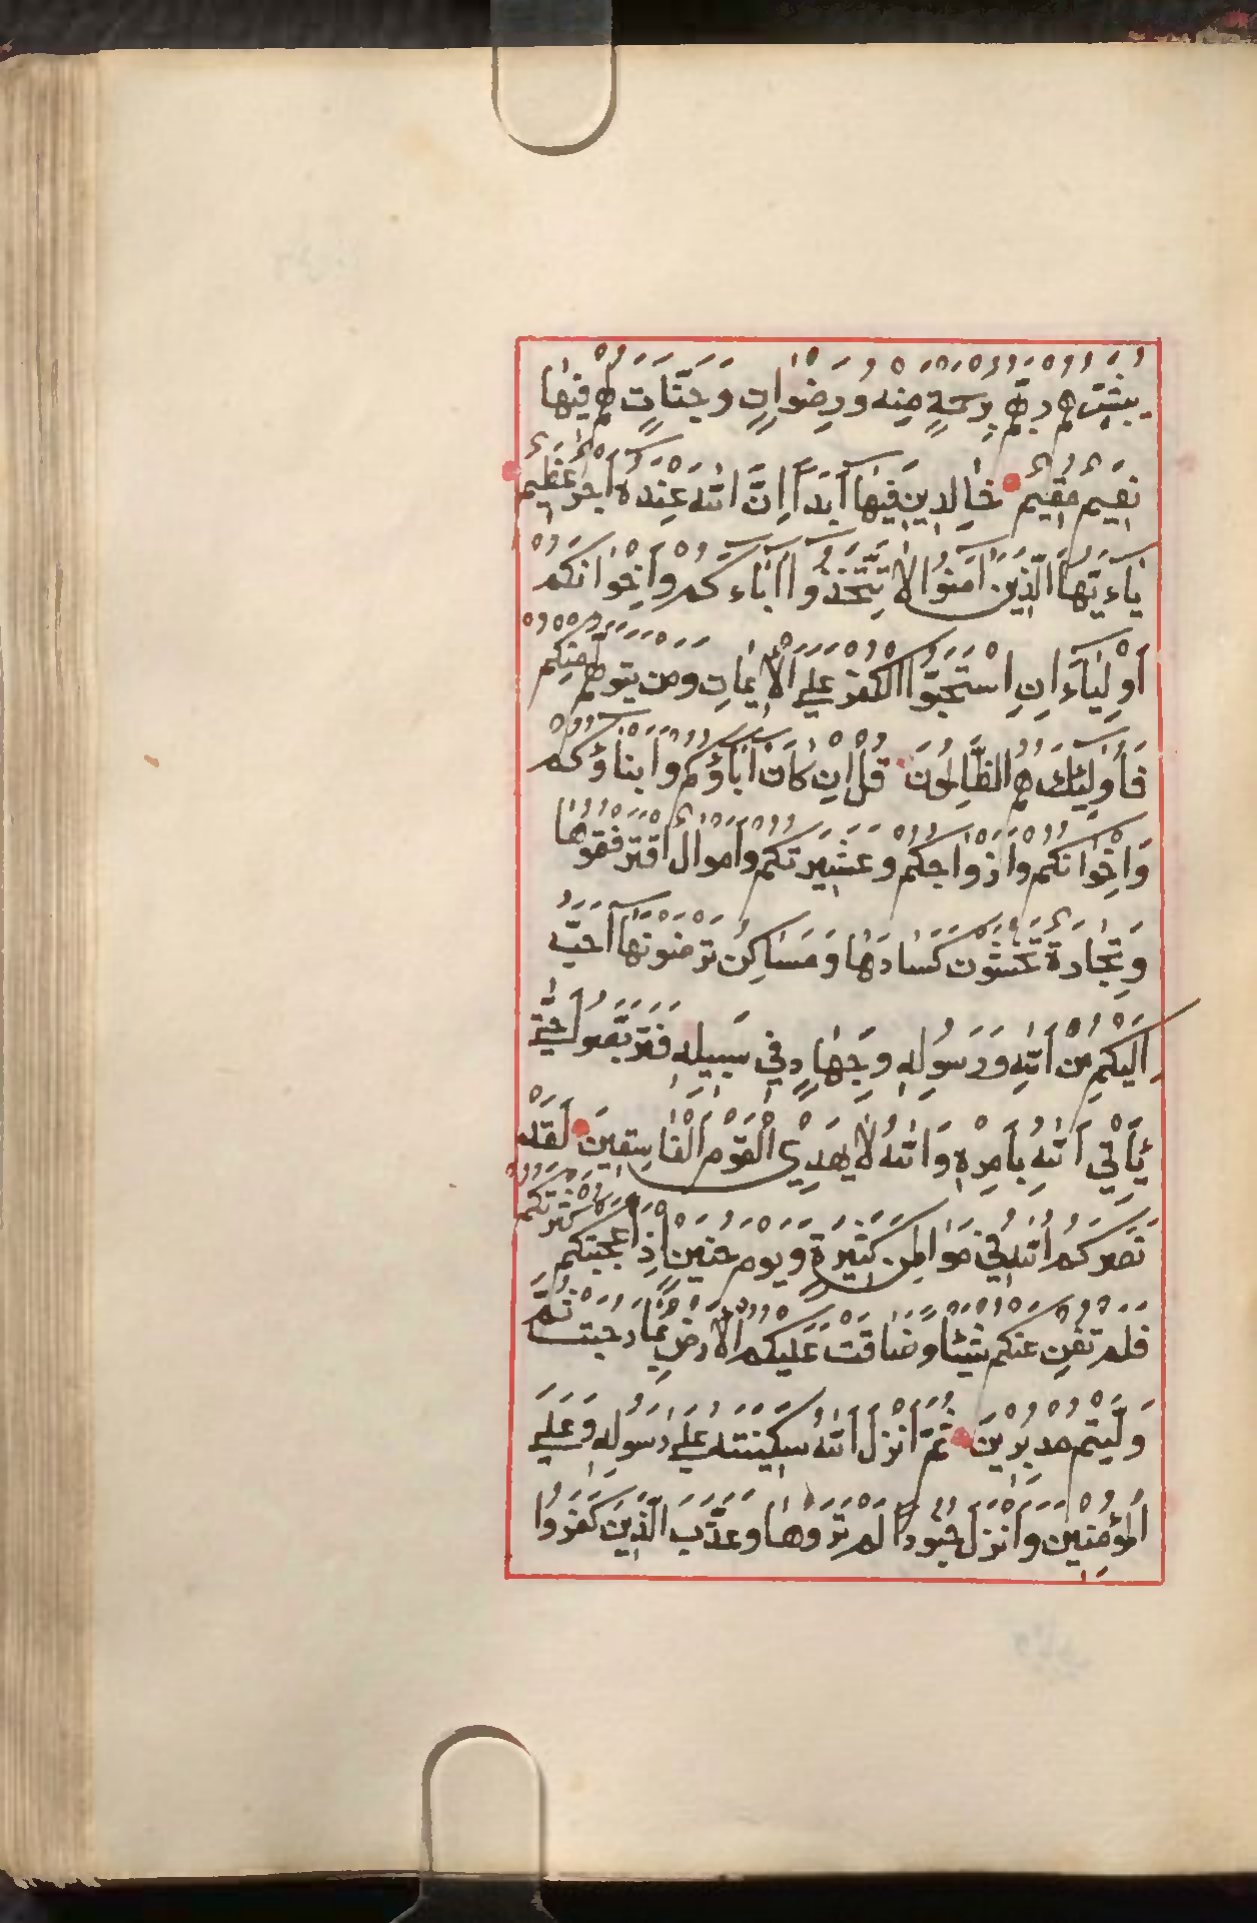 يُبَشِّرُهُمْ رَبُّهُمْ بِرَحْمَةٍ مِنْهُ وَرِضْوَانٍ وَجَنَّاتٍ لَهُمْ فِيهَا
نَعِيمٌ مُقِيمٌ خَالِدِينَ فِيهَا أَبَدًا إِنَّ اللَّهَ عِنْدَهُ أَجْرٌ عَظِيمٌ
يَاءَيُّهَا الَّذِينَ آمَنُوا لَا تَتَّخِذُوا آبَاءَكُمْ وَإِخْوَانَكُمْ
أَوْلِيَاءَ إِنِ اسْتَحَبُّوا الْكُفْرَ عَلَى الْإِيمَانِ وَمَنْ يَتَوَلَّهُمْ مِنْكُمْ
فَأُولَئِكَ هُمُ الظَّالِمُونَ قُلْ إِنْ كَانَ آبَاؤُكُمْ وَأَبْنَاؤُكُمْ
وَإِخْوَانُكُمْ وَأَزْوَاجُكُمْ وَعَشِيرَتُكُمْ وَأَمْوَالٌ اقْتَرَفْتُمُوهَا
وَتِجَارَةٌ تَخْشَوْنَ كَسَادَهَا وَمَسَاكِنُ تَرْضَوْنَهَا أَحَبَّ
إِلَيْكُمْ مِنَ اللَّهِ وَرَسُولِهِ وَجِهَادٍ فِي سَبِيلِهِ فَتَرَبَّصُوا حَتَّى
يَأْتِيَ اللَّهُ بِأَمْرِهِ وَاللَّهُ لَا يَهْدِي الْقَوْمَ الْفَاسِقِينَ لَقَدْ
نَصَرَكُمُ اللَّهُ فِي مَوَاطِنَ كَثِيرَةٍ وَيَوْمَ حُنَيْنٍ إِذْ أَعْجَبَتْكُمْ كَثْرَتُكُمْ
فَلَمْ تُغْنِ عَنْكُمْ شَيْئًا وَضَاقَتْ عَلَيْكُمُ الْأَرْضُ بِمَا رَحُبَتْ ثُمَّ
وَلَّيْتُمْ مُدْبِرِينَ ثُمَّ أَنْزَلَ اللَّهُ سَكِينَتَهُ عَلَى رَسُولِهِ وَعَلَى
الْمُؤْمِنِينَ وَأَنْزَلَ جُنُودًا لَمْ تَرَوْهَا وَعَذَّبَ الَّذِينَ كَفَرُوا